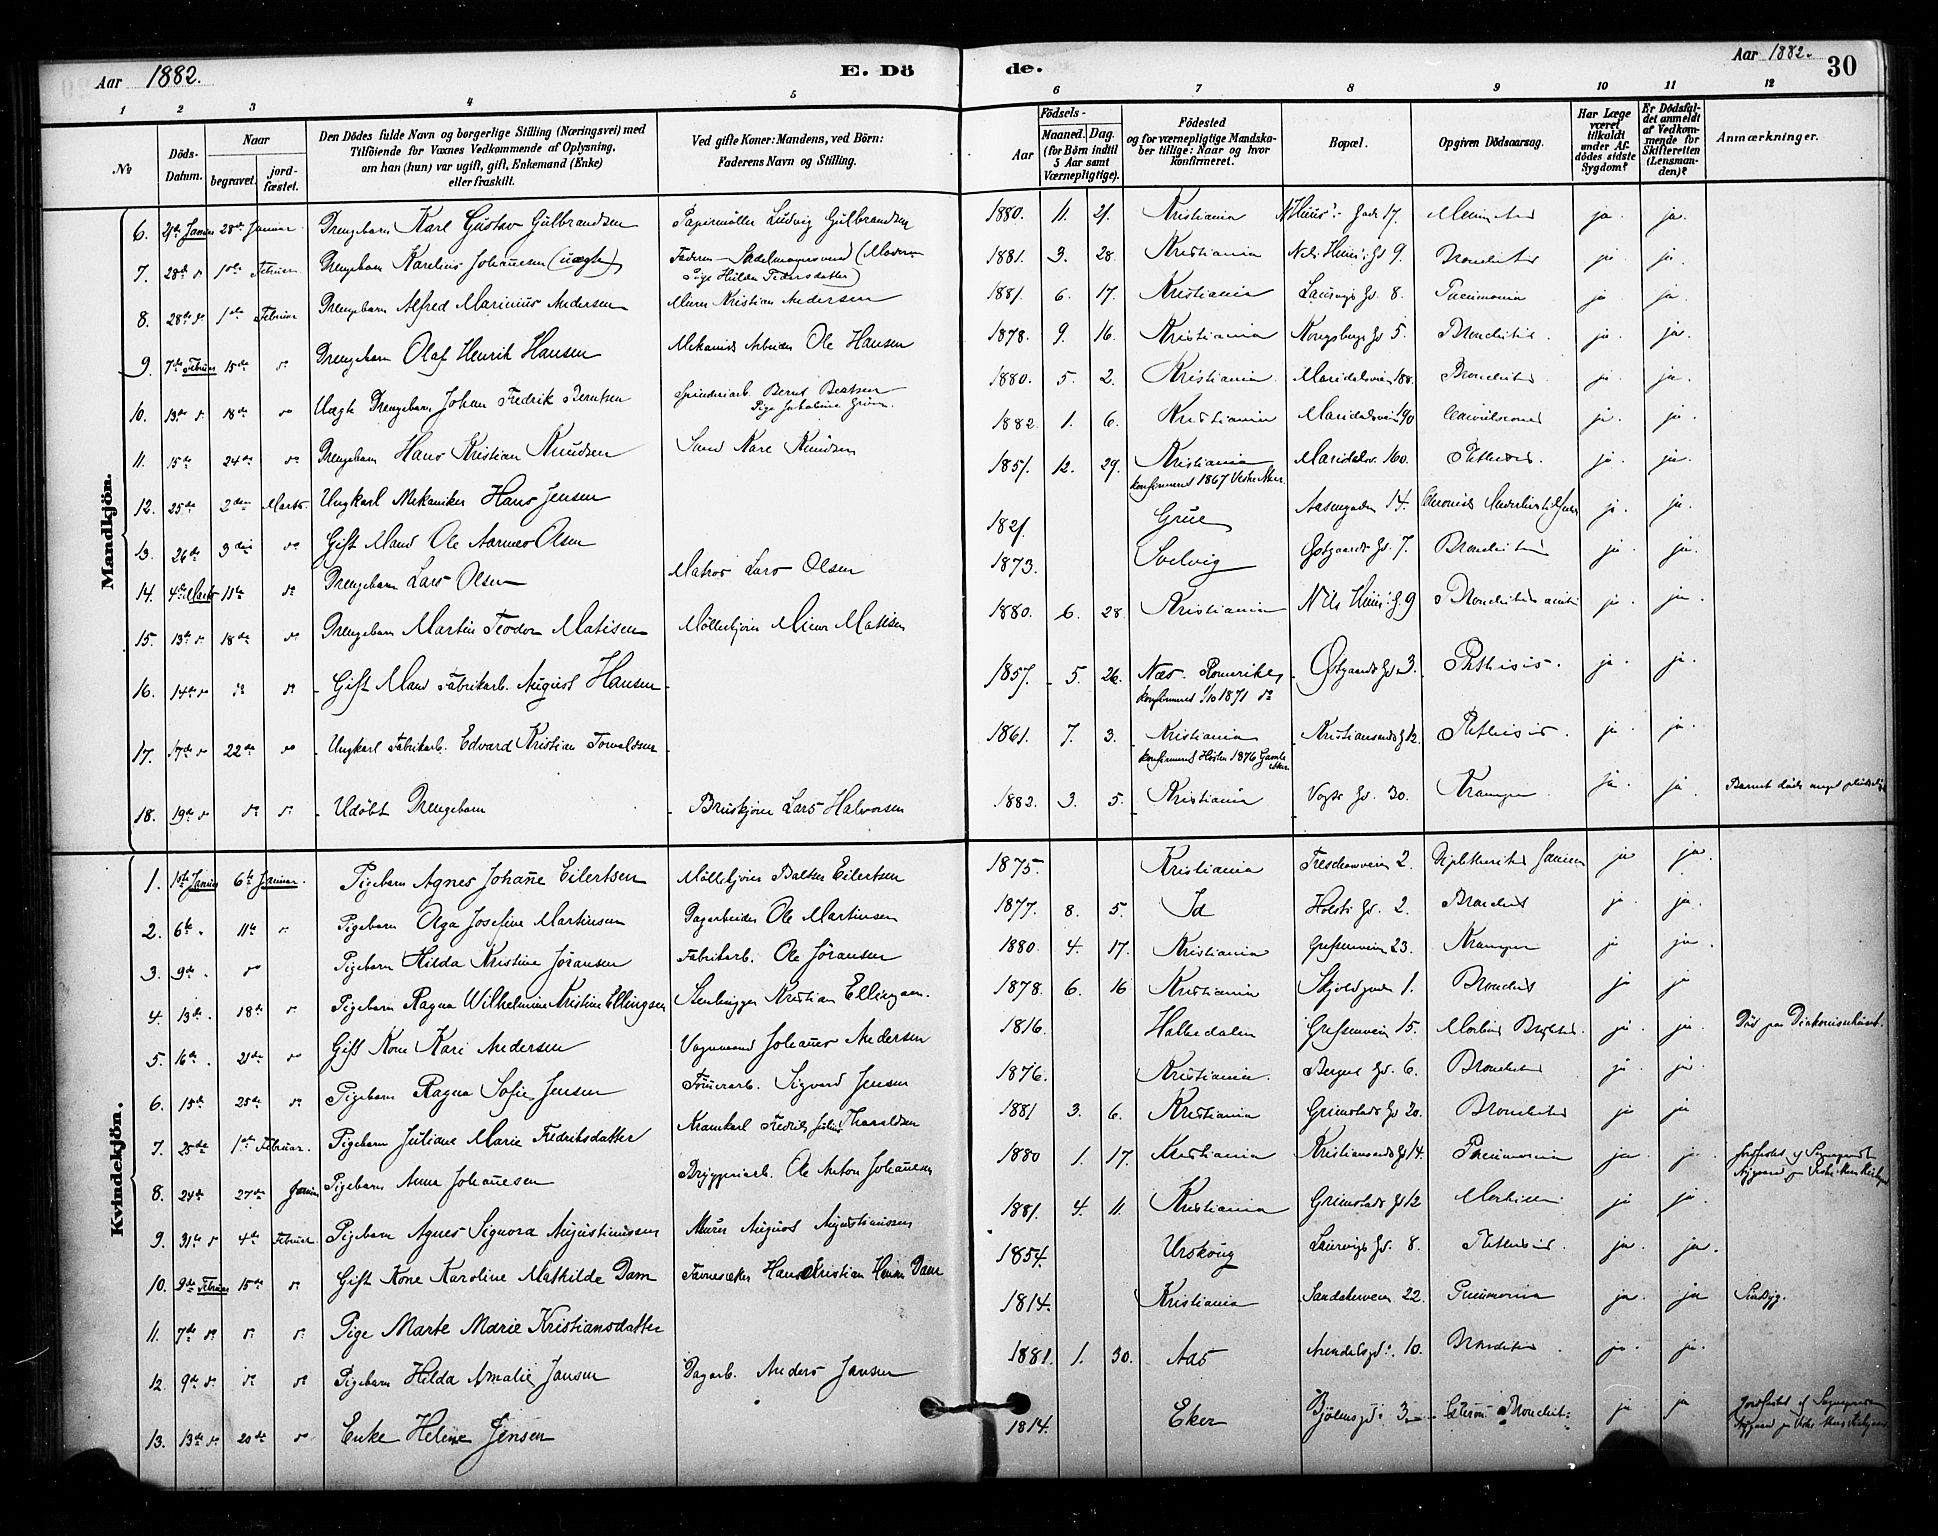 Aar 1882.
E. Döde.
Aar 1882.
30
1 2 3 4 5 6 7 8 9 10 11 12
No
Döds-Datum.
Naar
begravet.
jord-fæstet.
Den Dödes fulde Navn og borgerlige Stilling (Næringsvei) med
Tilföiende for Voxnes Vedkommende af Oplysning,
om han (hun) var ugift, gift, Enkemand (Enke)
eller fraskilt.
Ved gifte Koner: Mandens, ved Börn:
Faderens Navn og Stilling.
Födsels-
Aar
Maaned. Dag.
(for Börn indtil
5 Aar samt
Værnepligtige).
Födested
og for værnepligtige Mandska-
ber tillige: Naar og hvor
konfirmeret.
Bopæl.
Opgiven Dödsaarsag.
Har Læge
været
tilkaldt
under Af-
dödes sidste
Sygdom?
Er Dödsfal-
det anmeldt
af Vedkom-
mende for
Skifteretten
(Lensman-
den)?
Anmærkninger.
Mandkjön.
6. 21de Januar 28de Januar Drengebarn Karl Gustav Gulbrandsen Papirmøller Ludvig Gulbrandsen 1880. 11. 21. Kristiania 17. ja ja.
7. 28de d 1ste Februar Drengebarn Karelius Johannesen (uægte) Faderen Sadelmagersvend (Moderen
Pige Hilda Pedersdatter) 1881. 3. 28. Kristiania Nils Huus's Gd 9. Bronchitis ja ja.
8. 28de d 1ste Februar Drengebarn Alfred Marinius Andersen Murer Kristian Andersen 1881. 6. 17. Kristiania Laurvigs Gd. 8. Pneumonia ja ja.
9. 7de Februar 15de d Drengebarn Olaf Henrik Hansen Mekanisk Arbeider Ole Hansen 1878. 9. 16. Kristiania Kongsbergs Gd 5. Bronchitis ja. ja.
10. 13de d 18de do Uægte Drengebarn Johan Fredrik Berntsen Spinderiarb. Bernt Berntsen
Pige 1880. 5. 2. Kristiania. Maridalsveien 188. Bronchitis ja. ja.
11. 15de 24de do Drengebarn Hans Kristian Knudsen Knudsen 1882. 1. 6. Kristiania Maridalsveien 190 ja. ja.
12. 25de 2den Marts. Ungkarl Mekaniker Hans Jensen 1851. 12. 29. Kristiania
konfirmeret 1867 Vestre Aker. Maridalsv. 160. Phthisis. ja. ja.
13. 26de 3die do Gift Mand Ole Olsen 1821. Grue Aasengaden 14. ja. ja.
14. 4de Marts 11te do Drengebarn Lars Olsen Matros Lars Olsen 1873. Svelvig Østgaards Gd. 7. Bronchitis ja. ja.
15. 13de d 18de do Drengebarn Martin Teodor Matisen Møllerkjører Matisen 1880. 6. 28. Kristiania Nils Huus' G. 9 Bronchitis ja. ja.
16. 14de d do do Gift Mand Fabrikarb. August Hansen 1857. 5. 26. Næs. Romerike
konfirmeret 1/10 1871 do Østgaards Gd. 3. Phthisis. ja. ja.
17. 17de d 22de do Ungkarl Fabrikarb. Edvard Kristian Torvaldsen 1861. 7. 3. Kristiania
konfirmeret Høsten 1876 Gamle Aker. Kristiansunds G 12. Phthisis ja. ja
18. 19de d do do Udøbt Drengebarn Bruskjører Lars Halvorsen 1882. 3. 5. Kristiania Vogts Gd. 30. Kramper ja. ja. Barnet døde
Kvindekjön.
1. 1ste Januar 6te Januar. Pigebarn Agnes Johanne Eilertsen Møllekjører Baltser Eilertsen 1875. Kristiania Treschowsveien 2. ja ja.
2. 6te 11te d Pigebarn Olga Josefine Martinsen Dagarbeider Ole Martinsen 1877. 8. 5. Id Holsts Gd. 2. Bronchitis ja. ja.
3. 9de do Pigebarn Hilda Kristine Jøransen Fabrikarb. Ole Jøransen 1880. 4. 17. Kristiania Grefsenveien 23. Kramper ja ja.
4. 13de 18de d Pigebarn Ragna Wilhelmine Kristine Ellingsen Stenhugger Kristian Ellingsen. 1878. 6. 16 Kristiania Skjoldgaden 1. Bronchitis ja ja
5. 16de 21de do Gift Kone Kari Andersen Vognmand Johannes Andersen 1816. Grefsenveien 15. Morbus Brightii. ja. ja. Død paa Diakonissehuset.
6. 15de 25de do Pigebarn Ragna Sofie Jensen Sigvard Jensen 1876. Kristiania. Bergens Gd. 6. Bronchitis ja. ja.
7. 25de 1ste Februar. Pigebarn Juliane Marie Fredriksdatter Fredrik Julius Haraldsen 1881 3. 6. Kristiania Grimstads Gd 20. Bronchitis ja ja
8. 24de 27de Januar Pigebarn Anna Johannesen Bryggeriarb. Ole Anton Johannesen 1880 1. 17. Kristiania Kristiansunds Gd 14. Pneumonia ja. ja. Jordfæstet af Sognepræst
9. 31te d 4de Februar. Pigebarn Agnes Signora Augustinussen Murer August Augustinussen 1881. 4. 11. Kristiania Grimstads Gd 12 ja ja.
10. 9de Februar 15de d Gift Kone Karoline Mathilde Dam Hans Kristian Dam 1854. Urskoug Laurvigs Gd. 8. Phthisis. ja. ja.
11. 7de do d d Pige Marte Marie Kristiansdatter 1814. Kristiania Sandakerveien 22. Pneumonia ja. ja Sindsyg.
12. 9de d do do Pigebarn Hilda Amalie Jansen Dagarb. Anders Jansen 1881. 1. 30. Aas Arendalsgd. 10. Bronchitis ja. ja.
13. 13de d 20de do Enke Helene Jensen 1814. Eker Bjølsensgd. 3. Bronchit. ja ja Jordfæstet af Sognepræst